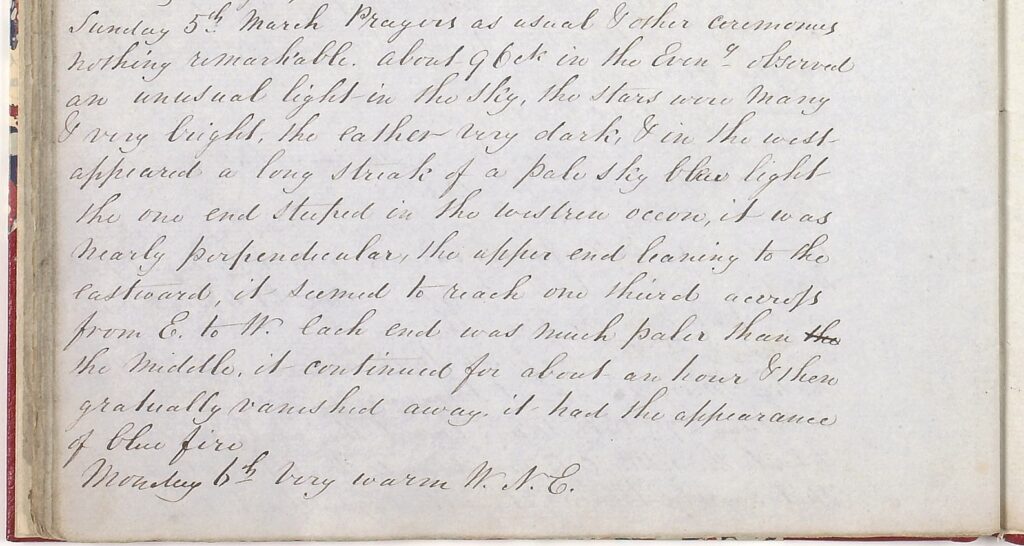 Sunday 5th March Prayers as usual & other ceremonies
nothing remarkable. about 9 Ock in the Eveng observed
an unusual light in the sky, the stars were many
& very bright, the eather very dark, & in the west
appeared a long streak of a pale sky blue light
the one end steeped in the westren oceon, it was
nearly perpendicular, the upper end leaning to the
eastward, it seemed to reach one third accross
from E. to W. Each end was much paler than the
the middle, it continued for about an hour & then
gratually vanished away. it had the appearance
of blue fire
Monday 6th Very warm W. N.E.